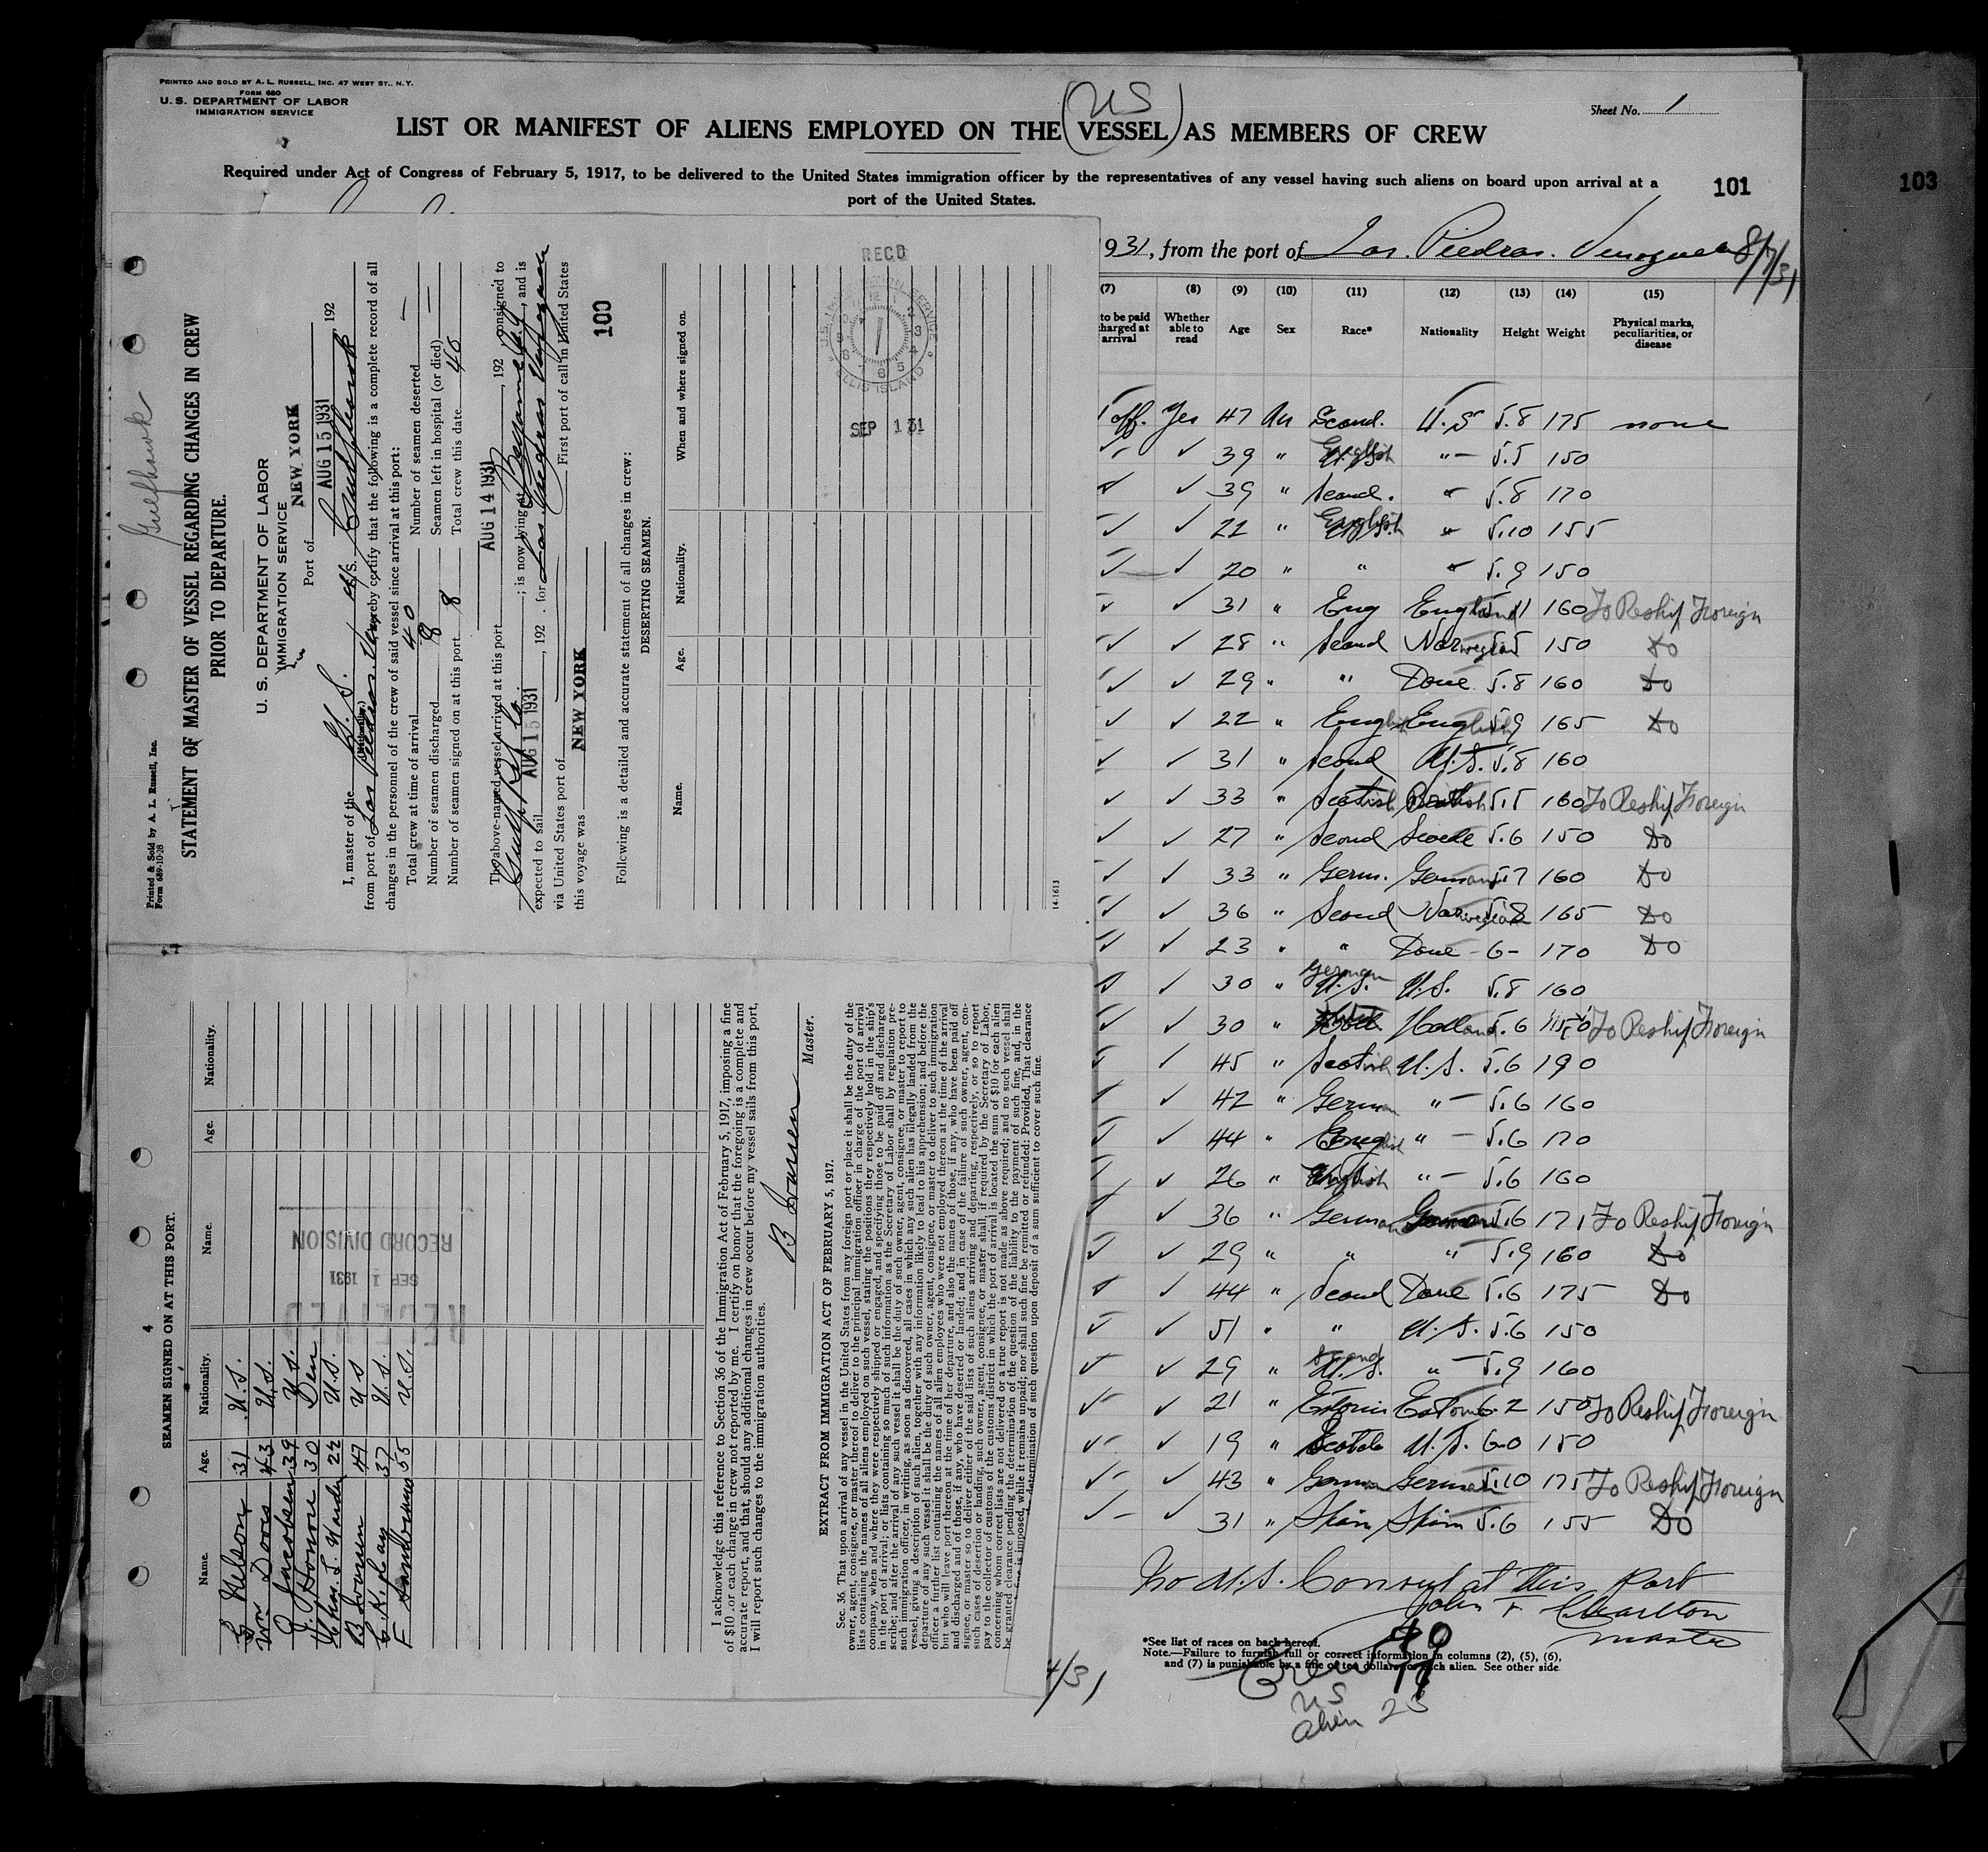 PRINTED AND SOLD BY A. L. RUSSELL, INC. 47 WEST ST., N.Y.
FORM 680
U. S. DEPARTMENT OF LABOR
IMMIGRATION SERVICE
Sheet No. 1
(US)
LIST OR MANIFEST OF ALIENS EMPLOYED ON THE VESSEL AS MEMBERS OF CREW
Required under Act of Congress of February 5, 1917, to be delivered to the United States immigration officer by the representatives of any vessel having such aliens on board upon arrival at a
port of the United States.
101
103
931, from the port of Las Piedras. Venezuela 8/7/31
(7) (8) (9) (10) (11) (12) (13) (14) (15)
to be paid
charged at
arrival
Whether
able to
read
Age
Sex
Race*
Nationality
Height
Weight
Physical marks,
peculiarities, or
disease
off. Yes 47 M Scand. U.S 5.8 175 none
✓ ✓ 39 " English "– 5.5 150
✓ ✓ 39 " Scand. " 5.8 170
✓ ✓ 22 " English " 5.10 155
✓ ✓ 20 " " " 5.9 150
✓ ✓ 31 " Eng England 160 To Reship Foreign
✓ ✓ 28 " Scand Norwegian 5.5 150 Do
✓ ✓ 29 " " Dane 5.8 160 Do
✓ ✓ 22 " English English 5.9 165 Do
✓ ✓ 31 " Scand U.S. 5.8 160
✓ ✓ 33 " Scotish British 5.5 160 To Reship Foreign
✓ ✓ 27 " Scand Swede 5.6 150 Do
✓ ✓ 33 " Germ. German 5.7 160 Do
✓ ✓ 36 " Scand Norwegian 5.8 165 Do
✓ ✓ 23 " " Dane 6– 170 Do
✓ ✓ 30 " German U.S. U.S. 5.8 160
✓ ✓ 30 " Holland 5.6 150 To Reship Foreign
✓ ✓ 45 " Scotish U.S. 5.6 190
✓ ✓ 42 " German "– 5.6 160
✓ ✓ 44 " English "– 5.6 170
✓ ✓ 26 " English "– 5.6 160
✓ ✓ 36 " German German 5.6 171 To Reship Foreign
✓ ✓ 29 " " " 5.9 160 Do
✓ ✓ 44 " Scand Dane 5.6 175 Do
✓ ✓ 51 " " U.S. 5.6 150
✓ ✓ 29 " Scand U.S. " 5.9 160
✓ ✓ 21 " Estonia Estonia 6.2 150 To Reship Foreign
✓ ✓ 19 " Scotch U.S. 6-0 150
✓ ✓ 43 " German German 5.10 175 To Reship Foreign
✓ ✓ 31 " Spain Spain 5.6 155 Do
No U.S. Consul at this Port
John F. Charlton
master
*See list of races on back hereof.
Note.—Failure to furnish full or correct information in columns (2), (5), (6),
and (7) is punishable by a fine of ten dollars for each alien. See other side
Crew
US
alien
Gulfhawk
Printed & Sold by A. L. Russell, Inc.
Form 689-10-28
STATEMENT OF MASTER OF VESSEL REGARDING CHANGES IN CREW
PRIOR TO DEPARTURE.
U. S. DEPARTMENT OF LABOR
IMMIGRATION SERVICE
NEW YORK
Port of AUG 15 1931, 192
I, master of the U.S. (Nationality) S/S. Gulfhawk
from port of Las Piedras Ven hereby certify that the following is a complete record of all
changes in the personnel of the crew of said vessel since arrival at this port:
Total crew at time of arrival 40 Number of seamen deserted —
Number of seamen discharged 8 Seamen left in hospital (or died) —
Number of seamen signed on at this port 8 Total crew this date 40
The above-named vessel arrived at this port AUG 14 1931, 192 consigned to
Gulf Ref Co.; is now lying at Bayonne N.J., and is
expected to sail AUG 15 1931, 192 . for Las Piedras Venezuela
via United States port of First port of call in United States
this voyage was NEW YORK
100
Following is a detailed and accurate statement of all changes in crew:
DESERTING SEAMEN.
Name. Age. Nationality. When and where signed on.
RECD
U.S. IMMIGRATION SERVICE
ELLIS ISLAND
SEP 1 31
14-1613
4
SEAMEN SIGNED ON AT THIS PORT.
Name. Age. Nationality. Name. Age. Nationality.
G Nelson 31 U.S.
Wm Doris 43 U.S.
P Jacobsen 39 U.S.
30 Den
Chas. S. 22 U.S.
B 47 US
37 U.S.
F 55 U.S.
RECEIVED
SEP 1 1931
RECORD DIVISION
I acknowledge this reference to Section 36 of the Immigration Act of February 5, 1917, imposing a fine
of $10 for each change in crew not reported by me. I certify on honor that the foregoing is a complete and
accurate report, and that, should any additional changes in crew occur before my vessel sails from this port,
I will report such changes to the immigration authorities.
Master.
EXTRACT FROM IMMIGRATION ACT OF FEBRUARY 5, 1917.
Sec. 36. That upon arrival of any vessel in the United States from any foreign port or place it shall be the duty of the
owner, agent, consignee, or master thereof to deliver to the principal immigration officer in charge of the port of arrival
lists containing the names of all aliens employed on such vessel, stating the positions they respectively hold in the ship's
company, when and where they were respectively shipped or engaged, and specifying those to be paid off and discharged
in the port of arrival; or lists containing so much of such information as the Secretary of Labor shall by regulation pre-
scribe; and after the arrival of any such vessel it shall be the duty of such owner, agent, consignee, or master to report to
such immigration officer, in writing, as soon as discovered, all cases in which any such alien has illegally landed from the
vessel, giving a description of such alien, together with any information likely to lead to his apprehension; and before the
departure of any such vessel it shall be the duty of such owner, agent, consignee, or master to deliver to such immigration
officer a further list containing the names of all alien employees who were not employed thereon at the time of the arrival
but who will leave port thereon at the time of her departure, and also the names of those, if any, who have been paid off
and discharged and of those, if any, who have deserted or landed; and in case of the failure of such owner, agent, con-
signee, or master so to deliver either of the said lists of such aliens arriving and departing, respectively, or so to report
such cases of desertion or landing, such owner, agent, consignee, or master shall, if required by the Secretary of Labor,
pay to the collector of customs of the customs district in which the port of arrival is located the sum of $10 for each alien
concerning whom correct lists are not delivered or a true report is not made as above required; and no such vessel shall
be granted clearance pending the determination of the question of the liability to the payment of such fine, and, in the
fine is imposed, while it remains unpaid; nor shall such fine be remitted or refunded: Provided, That clearance
determination of such question upon deposit of a sum sufficient to cover such fine.